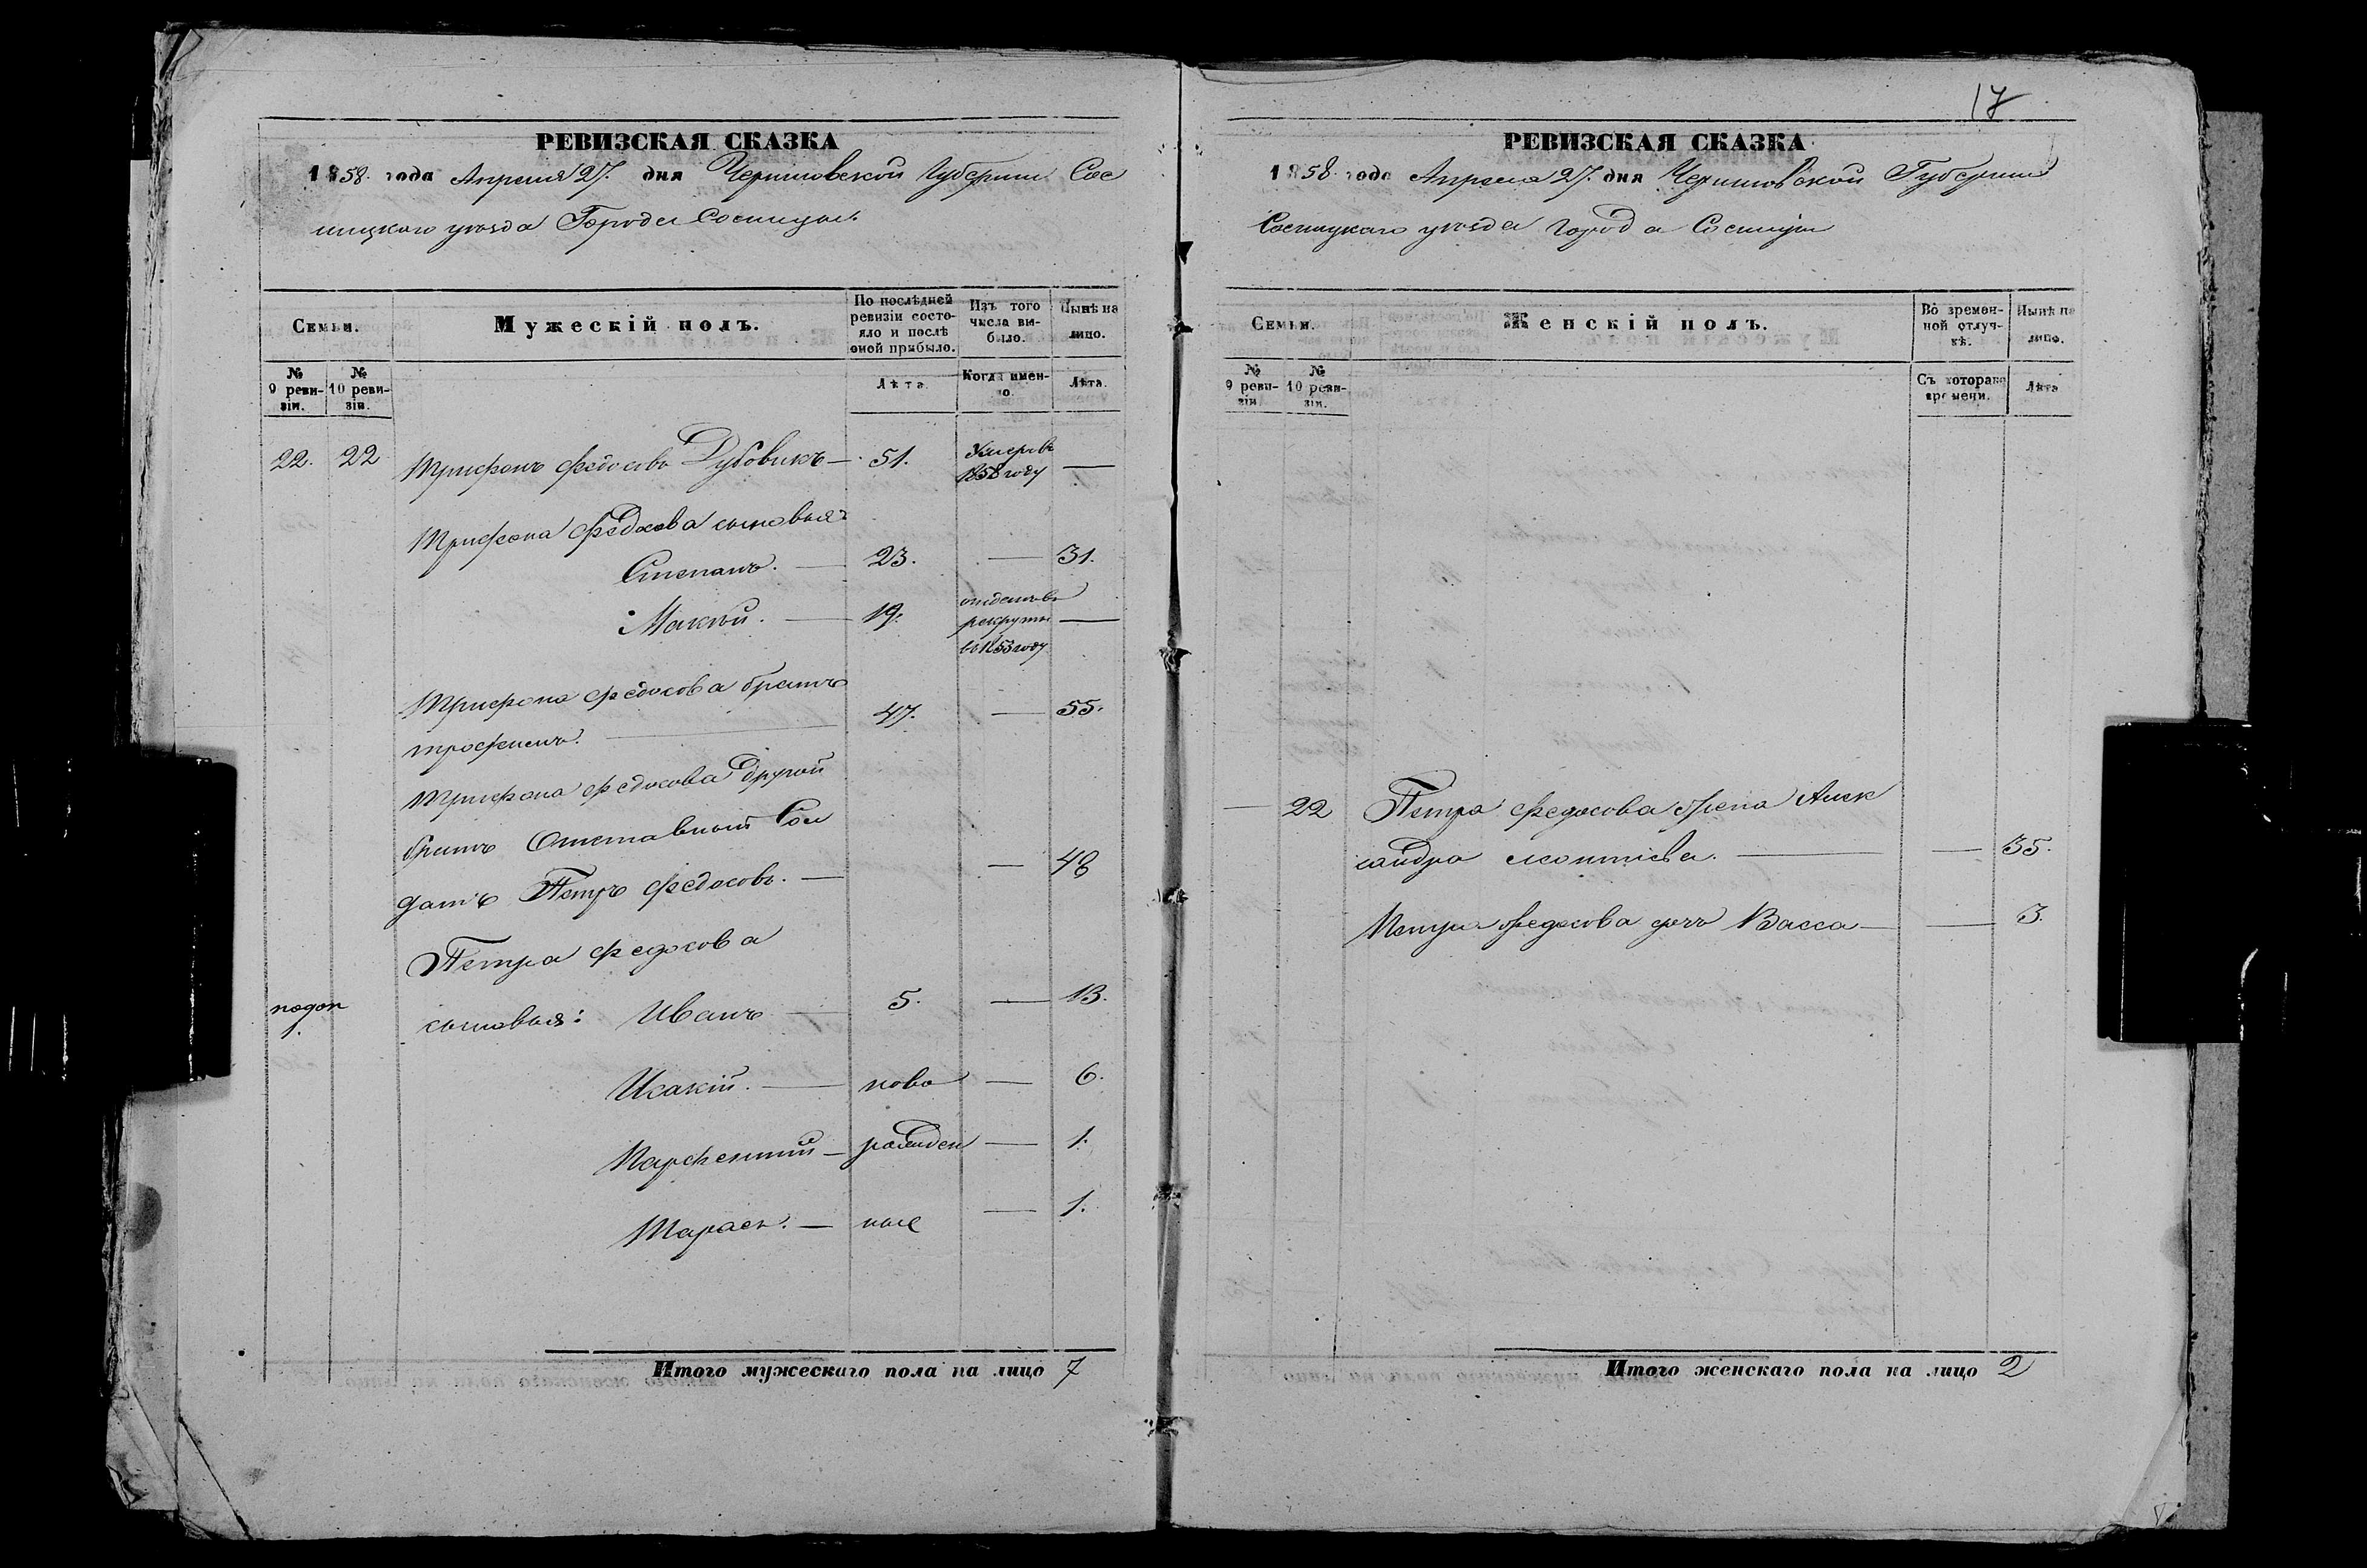 РЕВИЗСКАЯ СКАЗКА
1858 года Апреля 27. дня Черниговской Губернии Сос
ницкого уезда Города Сосницы.
Семьи.
Мужескій полъ.
По послѣдней ревизіи состояло и послѣ оной прибыло.
Изъ того числа выбыло.
Нынѣ на лицо.
№ 9 ревизіи.
№ 10 ревизіи.
Лѣта
Когда именно.
Лѣта.
22. 22 Трифонъ Федосовъ Дубовикъ — 51. Умеръ въ 1858 году —
Трифона Федосова сыновья:
Степанъ. — 23. — 31.
Макий. — 19. отданъ въ рекруты в 1853 году —
Трифона Федосова братъ
трофимъ. — 47. — 55.
Трифона Федосова Другой
братъ Отставной Сол
датъ Петръ Федосовъ. — — 48
Петра Федосова
сыновья: Иванъ — 5. — 13.
Исакій. — ново — 6.
Парфентий — рожден — 1.
Тарасъ. — ные — 1.
Итого мужескаго пола на лицо 7
17
РЕВИЗСКАЯ СКАЗКА
1858 года Апреля 27. дня Черниговской Губернии
Сосницкаго уезда города Сосницы
Семьи.
Женскій полъ.
Во временной отлучкѣ.
Нынѣ на лицо.
№ 9 ревизіи
№ 10 ревизіи.
Съ котораго времени.
Лѣта
— 22 Петра Федосова жена Алек
сандра Леонтіева. — — 35.
Петра Федосова дочь Васса — — 3.
Итого женскаго пола на лицо 2